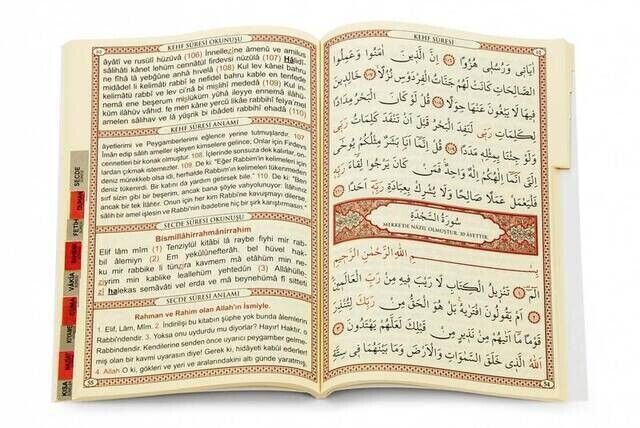 KEHF SÛRESİ OKUNUŞU
âyâtî ve rusulî hüzüvâ (106) İnnellezîne âmenû ve amilus
sâlihâti kânet lehüm cennâtül firdevsi nüzülâ (107) Hâlidî-
(108) Kul lev kânel bahru
midâdel li kelimâti rabbî le nefidel bahru kable en tenfede
kelimâtü rabbî ve lev ci'nâ bi mislihî mededâ (109) Kul in-
nemâ ene beşerum mislüküm yûhâ ileyye ennemâ ilâhü-
küm ilâhüv vâhid, fe men kâne yercû likâe rabbihî felya'mel
amelen sâlihav ve lâ yüşrik bi ibâdeti rabbihî ehadâ (110)
KEHF SÛRESİ ANLAMI
âyetlerimi ve Peygamberlerimi eğlence yerine tutmuşlardır. 107
İman edip salih ameller işleyen kimselere gelince; Onlar için Firdevs
cennetleri bir konak olmuştur. 108. İçlerinde sonsuza dek kalırlar, on-
lardan çıkmak istemezler. 109. De ki: "Eğer Rabbim'in kelimeleri için
deniz mürekkeb olsa idi, herhalde Rabbim'in kelimeleri tükenmeden
deniz tükenirdi. Bir katını da yardım getirsek bile." 110. De ki: "Ben
sırf sizin gibi bir beşerim, ancak bana şöyle vahyolunuyor: İlâhınız
ancak bir tek ilâhtır. Onun için her kim Rabb'ine kavuşmayı dilerse,
salih bir amel işlesin ve Rabb'inin ibadetine hiç bir şirk karıştırmasın."
SECDE SÛRESİ OKUNUŞU
Bismillâhirrahmânirrahîm
Elif lâm mîm (1) Tenzîylül kitâbi lâ raybe fîyhi mir rab-
bil âlemîyn (2) Em yekûlûnefterâh, bel hüvel hak-
ku mir rabbike li tünzira kavmem mâ etâhüm min ne-
zîyrim min kablike leallehüm yehtedûn (3) Allâhülle-
zî halekas semâvâti vel erda ve mâ beynehümâ fî sitteti
SECDE SÛRESİ ANLAMI
Rahman ve Rahim olan Allah'ın İsmiyle.
1. Elif, Lâm, Mîm. 2. İndirilişi bu kitabın şüphe yok bunda âlemlerin
Rabbi'ndendir. 3. Yoksa onu uydurdu mu diyorlar? Hayır! Haktır, o
Rabbi'ndendir. Kendilerine senden önce uyarıcı peygamber gelme-
miş olan bir kavmi uyarasın diye! Gerek ki, hidâyeti kabûl ederler!
4. Allah O ki, gökleri ve yeri ve aralarındakini altı günde yaratmış,
SECDE
DUHAN
FETİH
VÂKIA
KEHF SÛRESİ
اٰيَاتٖي وَرُسُلٖي هُزُوًا ۝ اِنَّ الَّذٖينَ اٰمَنُوا وَعَمِلُوا
الصَّالِحَاتِ كَانَتْ لَهُمْ جَنَّاتُ الْفِرْدَوْسِ نُزُلًا ۝ خَالِدٖينَ
فٖيهَا لَا يَبْغُونَ عَنْهَا حِوَلًا ۝ قُلْ لَوْ كَانَ الْبَحْرُ مِدَادًا
لِكَلِمَاتِ رَبّٖي لَنَفِدَ الْبَحْرُ قَبْلَ اَنْ تَنْفَدَ كَلِمَاتُ رَبّٖي
وَلَوْ جِئْنَا بِمِثْلِهٖ مَدَدًا ۝ قُلْ اِنَّمَٓا اَنَا بَشَرٌ مِثْلُكُمْ يُوحٰٓى
اِلَيَّ اَنَّمَٓا اِلٰهُكُمْ اِلٰهٌ وَاحِدٌ فَمَنْ كَانَ يَرْجُوا لِقَٓاءَ رَبِّهٖ
فَلْيَعْمَلْ عَمَلًا صَالِحًا وَلَا يُشْرِكْ بِعِبَادَةِ رَبِّهٖٓ اَحَدًا ۝
سُورَةُ السَّجْدَةِ
MEKKE'DE NÂZİL OLMUŞTUR. 30 ÂYETTİR.
بِسْمِ اللّٰهِ الرَّحْمٰنِ الرَّحٖيمِ
الٓمٓ ۝ تَنْزٖيلُ الْكِتَابِ لَا رَيْبَ فٖيهِ مِنْ رَبِّ الْعَالَمٖينَ
۝ اَمْ يَقُولُونَ افْتَرٰيهُ بَلْ هُوَ الْحَقُّ مِنْ رَبِّكَ لِتُنْذِرَ
قَوْمًا مَٓا اَتٰيهُمْ مِنْ نَذٖيرٍ مِنْ قَبْلِكَ لَعَلَّهُمْ يَهْتَدُونَ ۝
اَللّٰهُ الَّذٖي خَلَقَ السَّمٰوَاتِ وَالْاَرْضَ وَمَا بَيْنَهُمَا فٖي سِتَّةِ